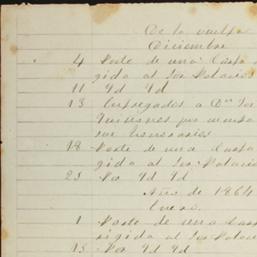 De la vuelta
Diciembre
4 Porte de una Carta
gida al Sor Palacios
11 Yd Yd
13 Entregados a Dn
por cuenta
sus honorarios
18 Porte de una Carta
gida al Sor Palacios
23 Por Yd Yd
Año de 1864
Enero.
1 Porte de una Car
rigida al Sor Palac
13 Por Yd Yd